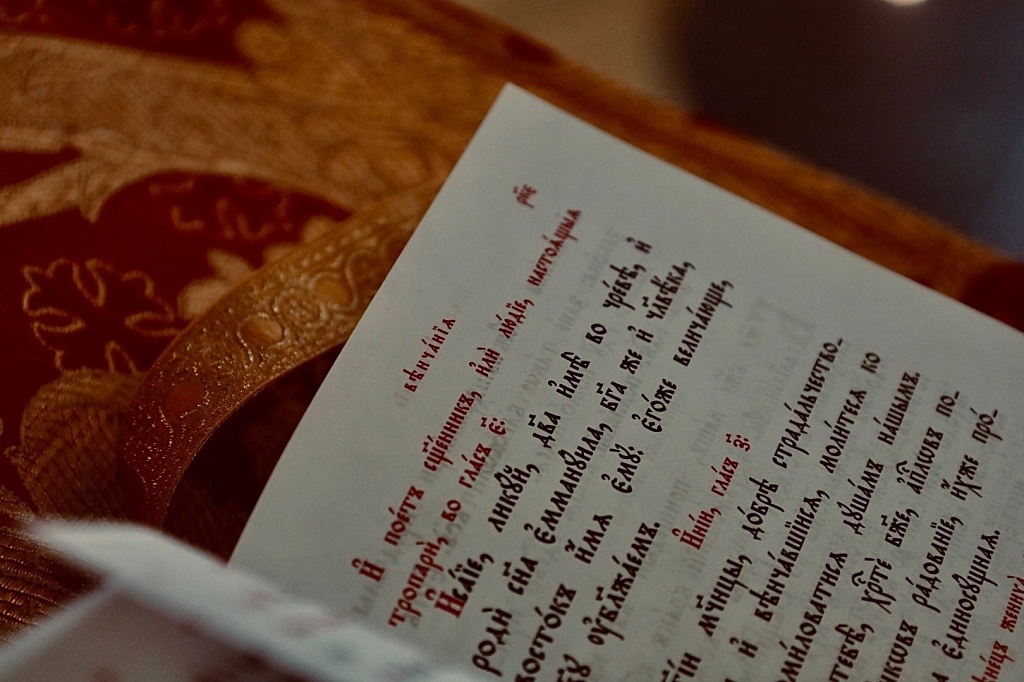 вѣнча́нїѧ рн҃е
И҆ пое́тъ сщ҃е́нникъ, и҆лѝ лю́дїе, настоѧ́щыѧ
тропарѝ, во гла́съ є҃:
И҆са́їе, лику́й, дв҃а и҆мѣ̀ во чре́вѣ, и҆
родѝ сн҃а є҆мманꙋ́ила, бг҃а же и҆ чл҃вѣ́ка,
восто́къ и҆́мѧ є҆мꙋ̀: є҆го́же велича́юще,
ᲂу҆бл҃жа́емъ.
И҆́нїи, гла́съ з҃:
мч҃нцы, до́брѣ страда́льчество-
и҆ вѣнча́вшїисѧ, моли́тесѧ ко
поми́ловатисѧ дꙋша́мъ на́шымъ.
тебѣ̀, хр҃тѐ бж҃е, а҆п҃лѡвъ по-
ра́дованїе, и҆́хже про́-
є҆диносꙋ́щнаѧ.